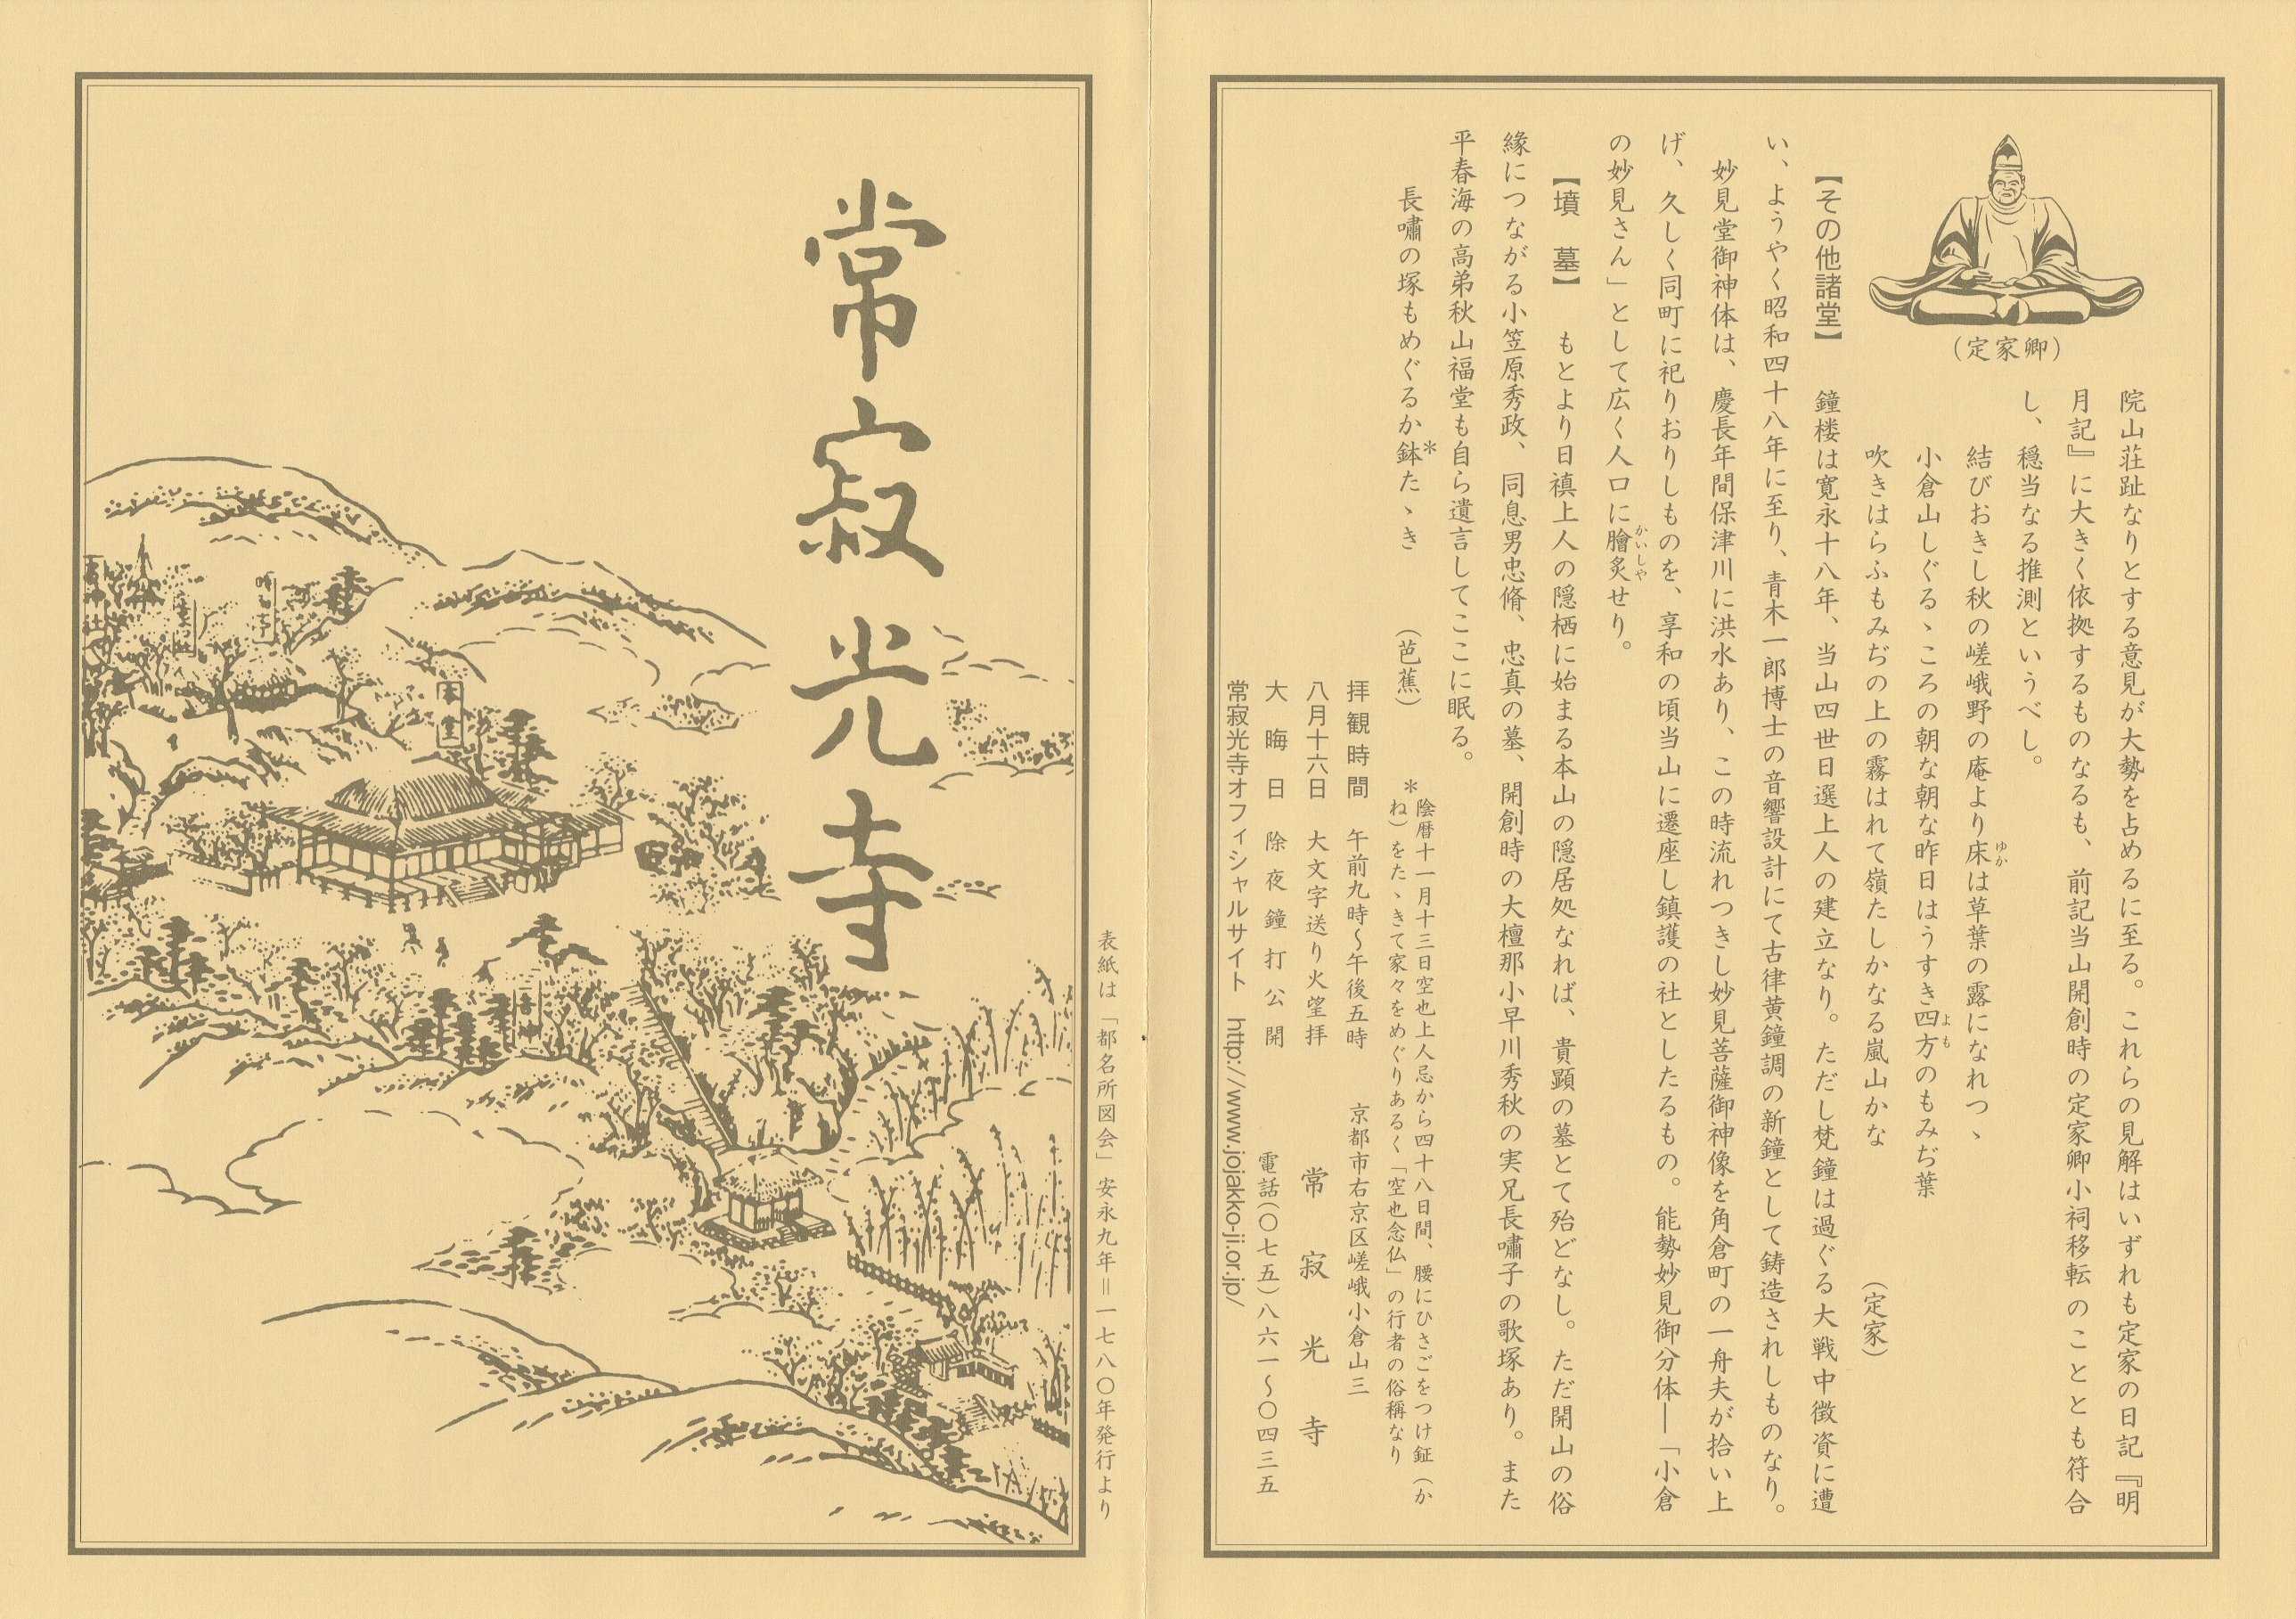 (定家卿)
院山荘趾なりとする意見が大勢を占めるに至る。これらの見解はいずれも定家の日記『明
月記』に大きく依拠するものなるも、前記当山開創時の定家卿小祠移転のこととも符合
し、穏当なる推測というべし。
結びおきし秋の嵯峨野の庵より床は草葉の露になれつゝ
ゆか
小倉山しぐるゝころの朝な朝な昨日はうすき四方のもみぢ葉
よも
吹きはらふもみぢの上の霧はれて嶺たしかなる嵐山かな
(定家)
【その他諸堂】 鐘楼は寛永十八年、当山四世日選上人の建立なり。ただし梵鐘は過ぐる大戦中徴資に遭
い、ようやく昭和四十八年に至り、青木一郎博士の音響設計にて古律黄鐘調の新鐘として鋳造されしものなり。
妙見堂御神体は、慶長年間保津川に洪水あり、この時流れつきし妙見菩薩御神像を角倉町の一舟夫が拾い上
げ、久しく同町に祀りおりしものを、享和の頃当山に遷座し鎮護の社としたるもの。能勢妙見御分体―「小倉
の妙見さん」として広く人口に膾炙せり。
かいしや
【墳 墓】 もとより日禛上人の隠栖に始まる本山の隠居処なれば、貴顕の墓とて殆どなし。ただ開山の俗
縁につながる小笠原秀政、同息男忠脩、忠真の墓、開創時の大檀那小早川秀秋の実兄長嘯子の歌塚あり。また
平春海の高弟秋山福堂も自ら遺言してここに眠る。
長嘯の塚もめぐるか鉢たゝき (芭蕉)
*
*陰暦十一月十三日空也上人忌から四十八日間、腰にひさごをつけ鉦(か
ね)をたゝきて家々をめぐりあるく「空也念仏」の行者の俗稱なり
拝観時間 午前九時〜午後五時
八月十六日 大文字送り火望拝
大晦日 除夜鐘打公開
京都市右京区嵯峨小倉山三
常寂光寺
電話(〇七五)八六一〜〇四三五
常寂光寺オフィシャルサイト http://www.jojakko-ji.or.jp/
表紙は「都名所図会」安永九年=一七八〇年発行より
常寂光寺
本堂